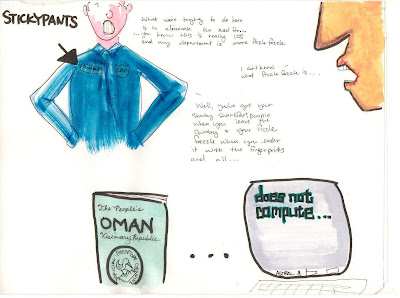 STICKYPANTS
What we're trying to do here
is to eliminate the need for...
...you know this is really IOS
and my department is more Fizzle Fizzle.
I don't know
what Fizzle Fizzle is...
Well, you've got your
people
when you leave the
& your Fizzle
Fizzle when you enter
it with the fingerprints
and all...
The People's
OMAN
Visionary Republic.
does not
compute...